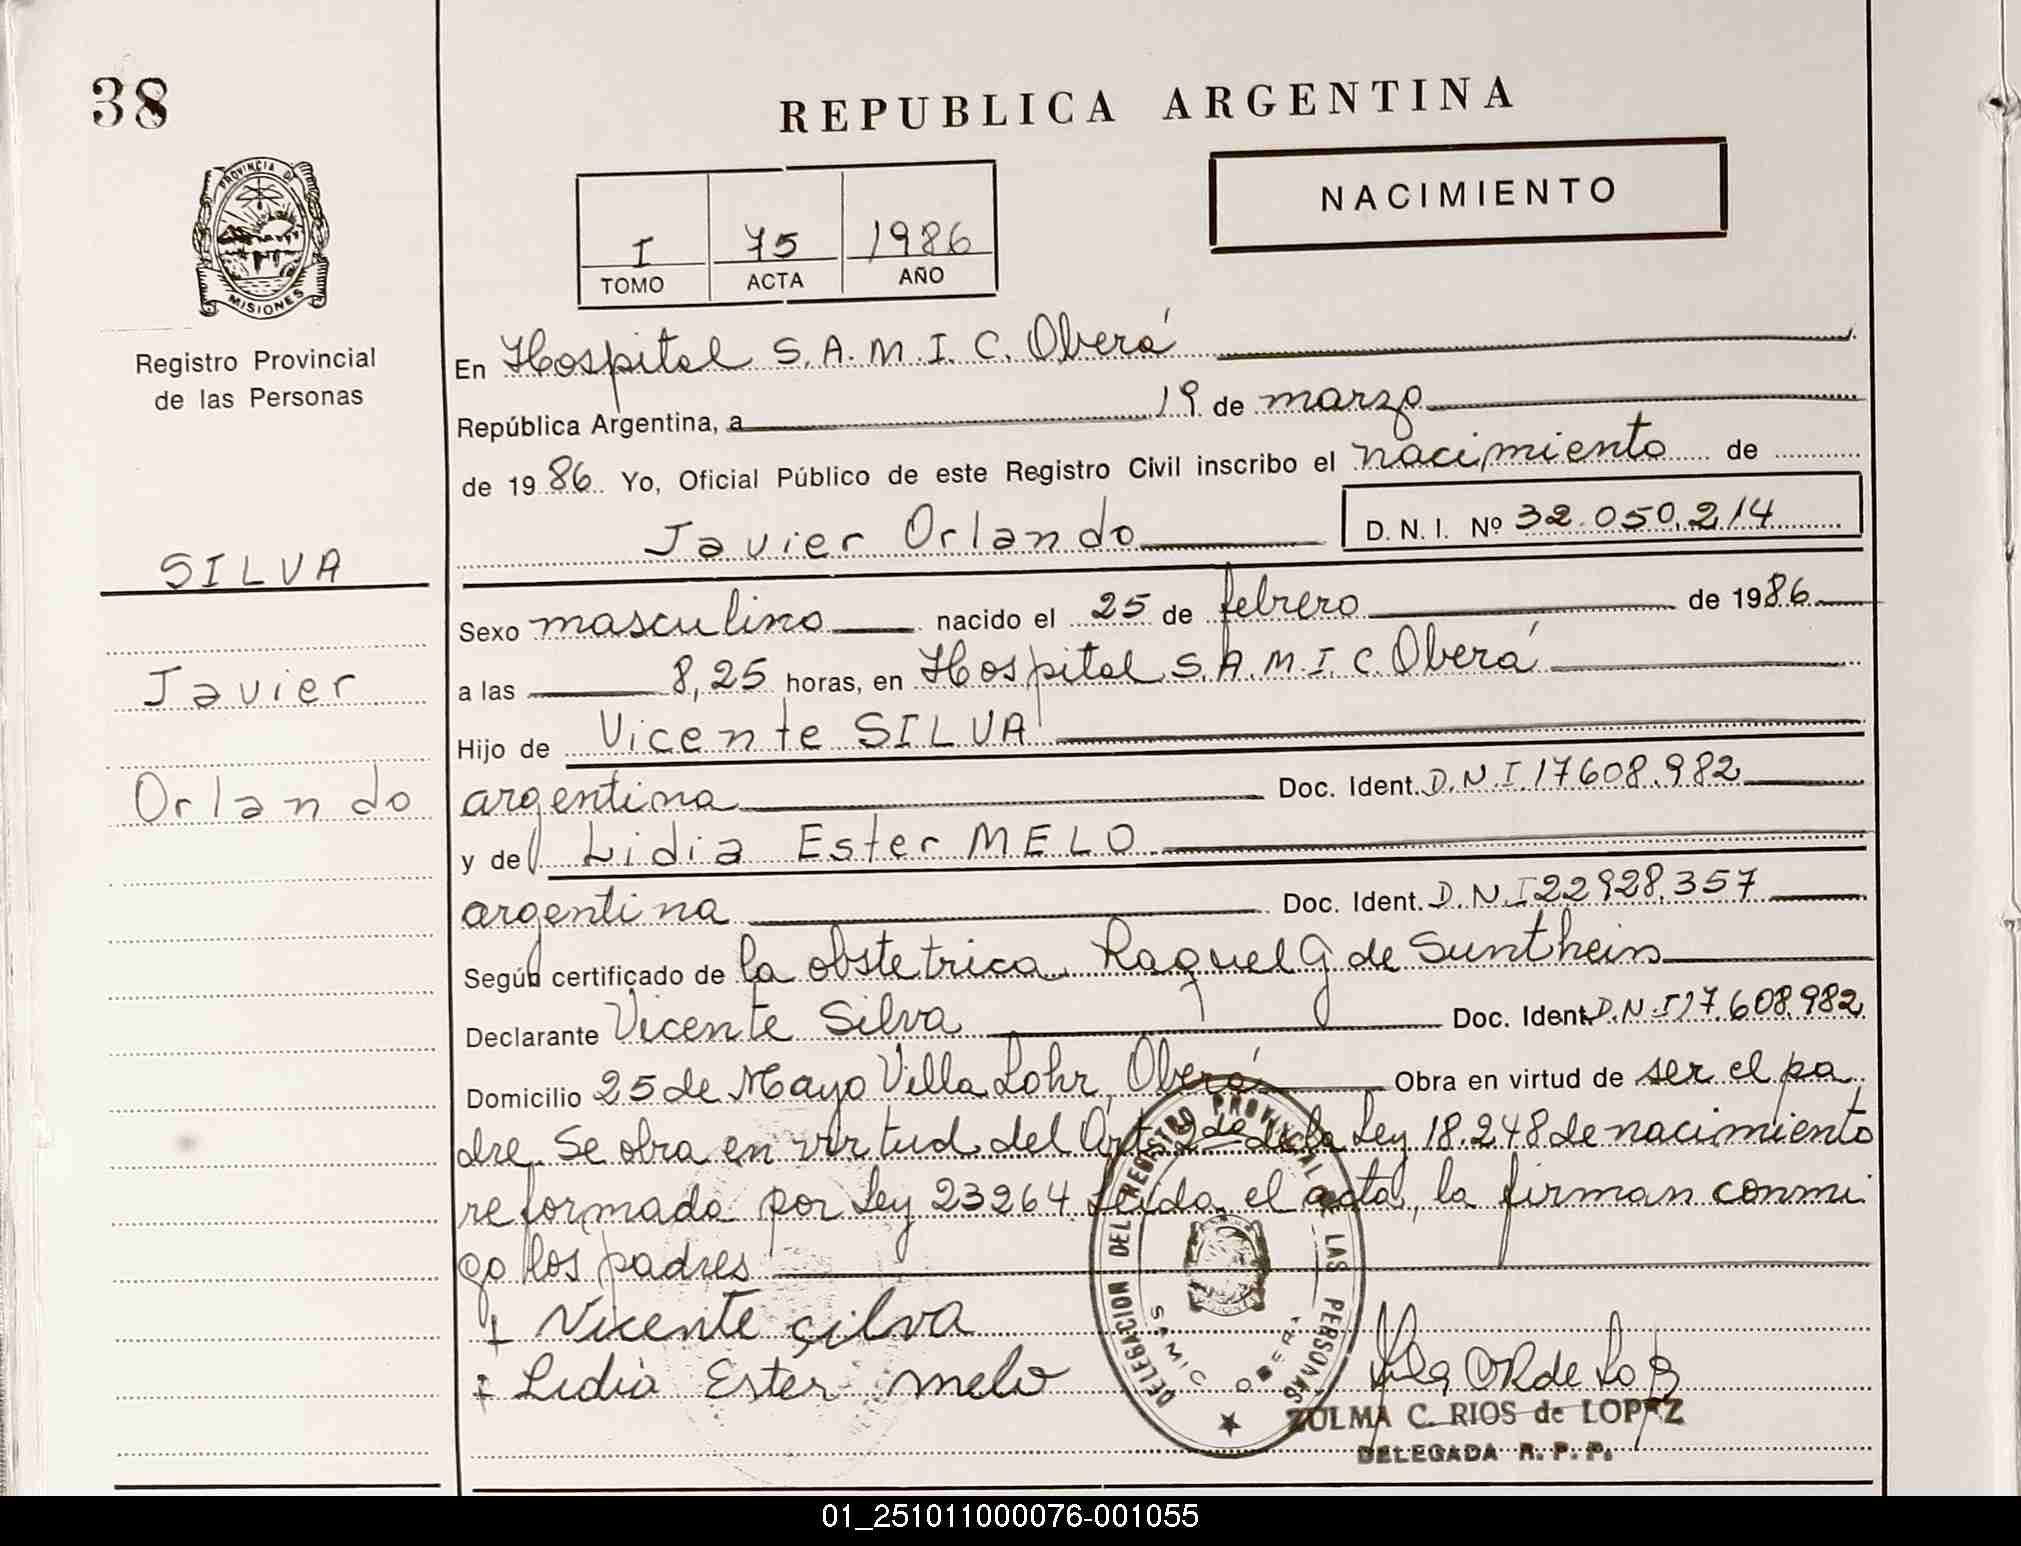 38
REPUBLICA ARGENTINA
PROVINCIA DE
MISIONES
NACIMIENTO
I 75 1986
TOMO ACTA AÑO
Registro Provincial
de las Personas
En Hospital S.A.M.I.C. Oberá
República Argentina, a 19 de marzo
de 1986 Yo, Oficial Público de este Registro Civil inscribo el nacimiento de
Javier Orlando D.N.I. Nº 32.050.214
SILVA
Javier
Orlando
Sexo masculino nacido el 25 de febrero de 1986
a las 8,25 horas, en Hospital S.A.M.I.C. Oberá
Hijo de Vicente SILVA
argentina Doc. Ident. D.N.I 17608.982
y de Lidia Ester MELO
argentina Doc. Ident. D.N.I 22928.357
Según certificado de la obstetrica Raquel G de Sunthein
Declarante Vicente Silva Doc. Ident. D.N.I 17.608.982
Domicilio 25 de Mayo Villa Lohr, Oberá Obra en virtud de ser el pa
dre. Se obra en virtud del Art 2 de de la Ley 18.248 de nacimiento
reformada por Ley 23264. Leída el acta, la firman conmi
go los padres
+ Vicente çilva
+ Lidia Ester melo
DELEGACION DEL REGISTRO PROVINCIAL DE LAS PERSONAS
SAMIC OBERA
ZULMA C. RIOS de LOPEZ
DELEGADA R. P. P.
01_251011000076-001055